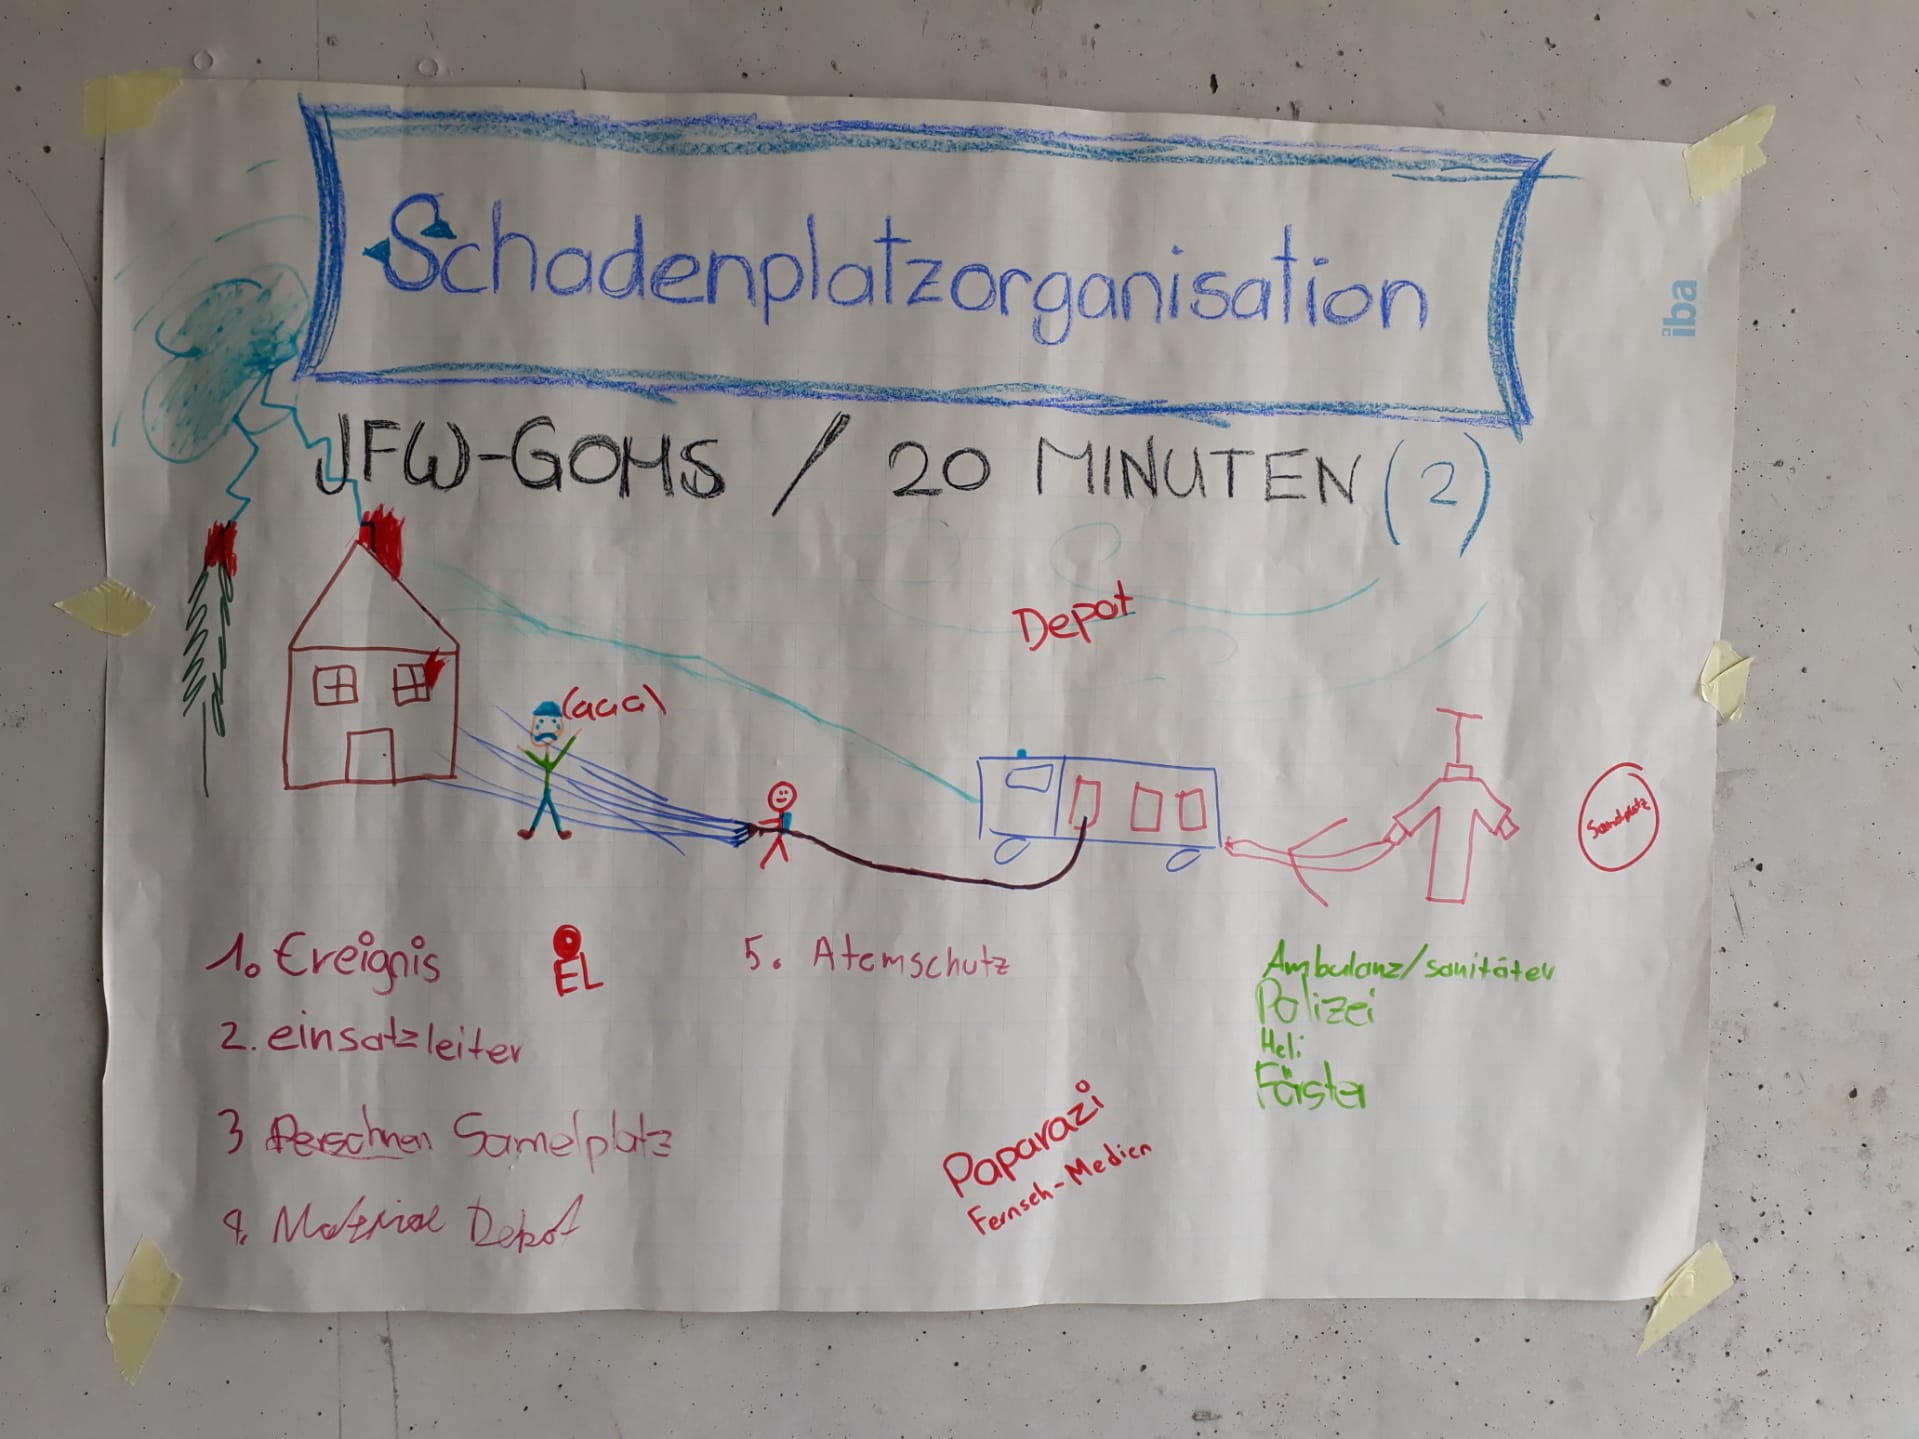 Schadenplatzorganisation
iba
JFW-GOMS / 20 MINUTEN (2)
Depot
(aaa)
Samelplatz
1. Ereignis
EL
5. Atemschutz
Ambulanz/sanitäter
Polizei
Heli
Förster
2. einsatzleiter
3 Persohnen Samelplatz
4. Material Depot
Paparazi
Fernseh-Medien